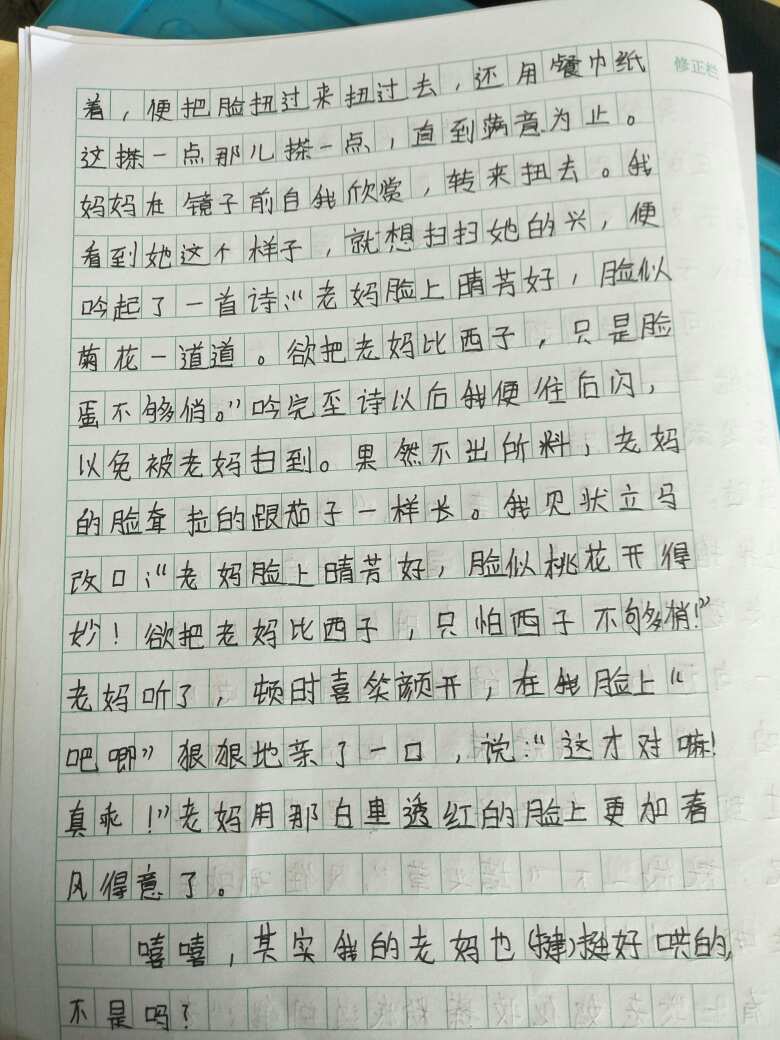 修正栏
着，便把脸扭过来扭过去，还用餐巾纸
这搽一点那儿搽一点，直到满意为止。
妈妈在镜子前自我欣赏，转来扭去。我
看到她这个样子，就想扫扫她的兴，便
吟起了一首诗：“老妈脸上晴芳好，脸似
菊花一道道。欲把老妈比西子，只是脸
蛋不够俏。”吟完至诗以后我便往后闪，
以免被老妈扫到。果然不出所料，老妈
的脸耷拉的跟茄子一样长。我见状立马
改口：“老妈脸上晴芳好，脸似桃花开得
妙！欲把老妈比西子，只怕西子不够俏！”
老妈听了，顿时喜笑颜开，在我脸上“
吧唧”狠狠地亲了一口，说：“这才对嘛！
真乖！”老妈用那白里透红的脸上更加春
风得意了。
嘻嘻，其实我的老妈也挺好哄的，
不是吗？